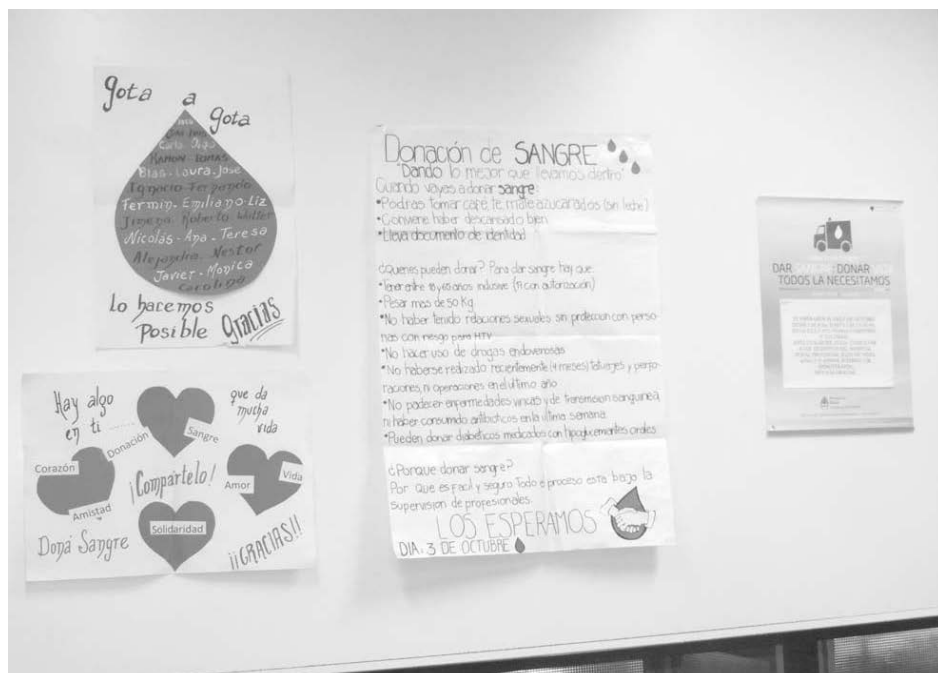 gota a gota
Carla - Olga
RAMON - TOMAS
Blas - Laura - Jose
Ignacio - Fernando
Fermin - Emiliano - Liz
Jimena - Roberto - Walter
Nicolas - Ana - Teresa
Alejandra - Nestor
Javier - Monica
Carolina
Lo haremos
Posible Gracias
Hay algo
en ti ......
que da
mucha
vida
Donación
Sangre
Corazón
Amistad
¡Compártelo!
Amor
Vida
Solidaridad
Doná Sangre
¡¡GRACIAS!!
Donación de SANGRE
"Dando lo mejor que llevamos dentro"
Cuando vayas a donar sangre:
•Podras tomar café te mate azucarados (sin leche)
•Conviene haber descansado bien
•Lleva documento de identidad
¿Quienes pueden donar? Para dar sangre hay que:
Tener entre 18 y 65 años inclusive (17 con autorización)
•Pesar mas de 50 Kg
•No haber tenido relaciones sexuales sin proteccion con perso
nas con riesgo para HIV
•No hacer uso de drogas endovenosas
•No haberse realizado recientemente (4 meses) tatuajes y perfo
raciones, ni operaciones en el ultimo año
•No padecer enfermedades vinicas y de transmision sanguinea,
ni haber consumido antibioticos en la ultima semana
•Pueden donar diabéticos medicados con hipoglucemiantes orales
¿Porque donar sangre?
Por que es facil y seguro Todo el proceso esta bajo la
supervision de profesionales.
LOS ESPERAMOS
DIA: 3 DE OCTUBRE
DAR SANGRE ES DONAR VIDA
TODOS LA NECESITAMOS